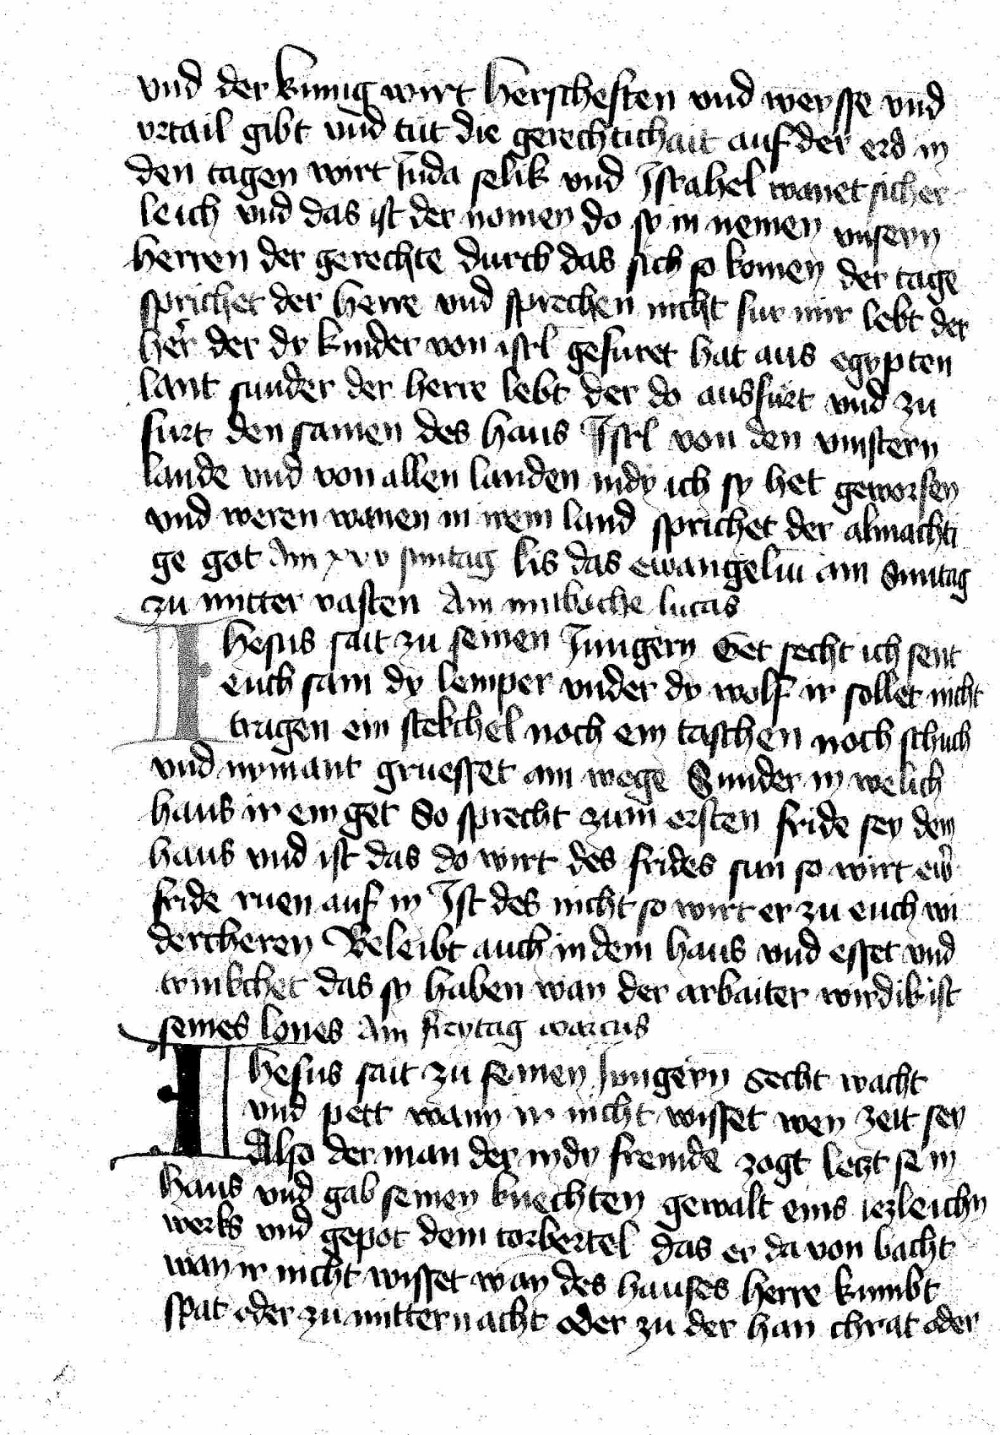 vnd der kunig wirt herschesten vnd weysse vnd
vrtail gibt vnd tut die gerechtichait auf der erd in
den tagen wirt Iuda selik vnd Israhel wanet sicher
leich vnd das ist der nomen do sy in nemen vnsern
herren der gerechte durch das sich so komen der tage
sprichet der herre vnd sprechen nicht fur mir lebt der
her der dy kinder von isrl gefuret hat aus egypten
lant sunder der herre lebt der do ausfurt vnd zu
furt den samen des haus Isrl von den vinstern
lande vnd von allen landen indy ich sy het geworfen
vnd weren wanen in irem land sprichet der almachti
ge got Am xxv suntag lis das ewangeliu am Suntag
zu mitter vasten Am mitboche lucas
Ihesus sait zu seinen Iungern Get secht ich sent
euch sam dy lemper vnder dy wolf ir sollet nicht
tragen ein stekchel noch ein taschen noch schuch
vnd nymant gruesset am wege Sunder in welich
haus ir ein get So sprecht zum ersten fride sey dem
haus vnd ist das do wirt des frides sun so wirt ew
fride ruen auf in Ist des nicht so wirt er zu euch wi
dercheren Beleibt auch in dem haus vnd esset vnd
trinkchet das sy haben wan der arbaiter wirdik ist
seines lones Am freytag marcus
Ihesus sait zu seinen Iungern Secht wacht
vnd pett wann ir nicht wisset wen zeit sey
Also der man der indy fremde zogt letzt sein
haus vnd gab seinen knechten gewalt eins iezleichn
werks vnd gepot dem torbertel das er da von bacht
wan ir nicht wisset wan des hauses herre kumbt
spat oder zu mitternacht oder zu der han chrat oder